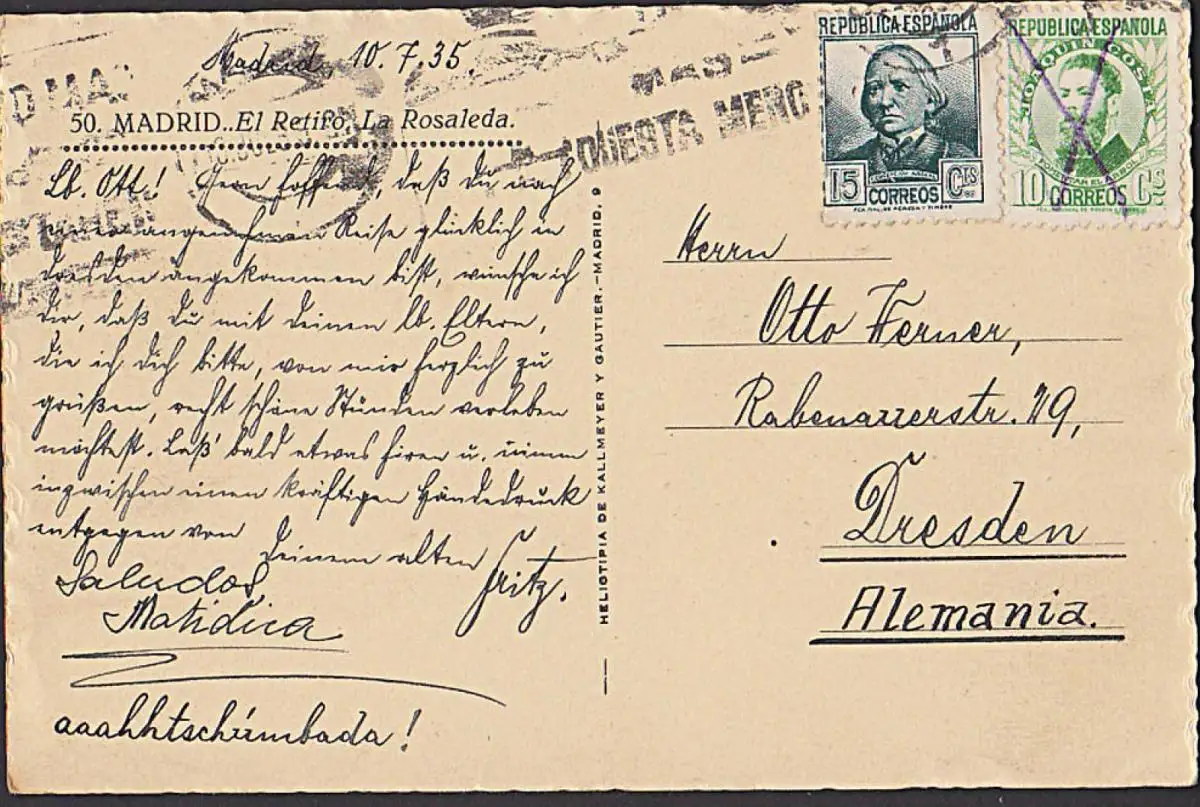 Madrid, 10.7.35.
50. MADRID..El Retiro, La Rosaleda.
Lb. Ott! Gern hoffend, daß du nach
einer angenehmen Reise glücklich in
Dresden angekommen bist, wünsche ich
dir, daß du mit deinen lb. Eltern,
die ich dich bitte, von mir herzlich zu
grüßen, recht schöne Stunden verleben
möchtest. Laß' bald etwas hören u. nimm
inzwischen einen kräftigen Händedruck
entgegen von
deinem alten Fritz.
Saludos
aaahhtschimbada!
HELIOTIPIA DE KALLMEYER Y GAUTIER.–MADRID. 9
REPUBLICA ESPAÑOLA
15 CORREOS Cts
REPUBLICA ESPAÑOLA
JOAQUIN COSTA
10 CORREOS Cs
Herrn
Otto Werner,
Rabenauerstr. 29,
Dresden
Alemania.